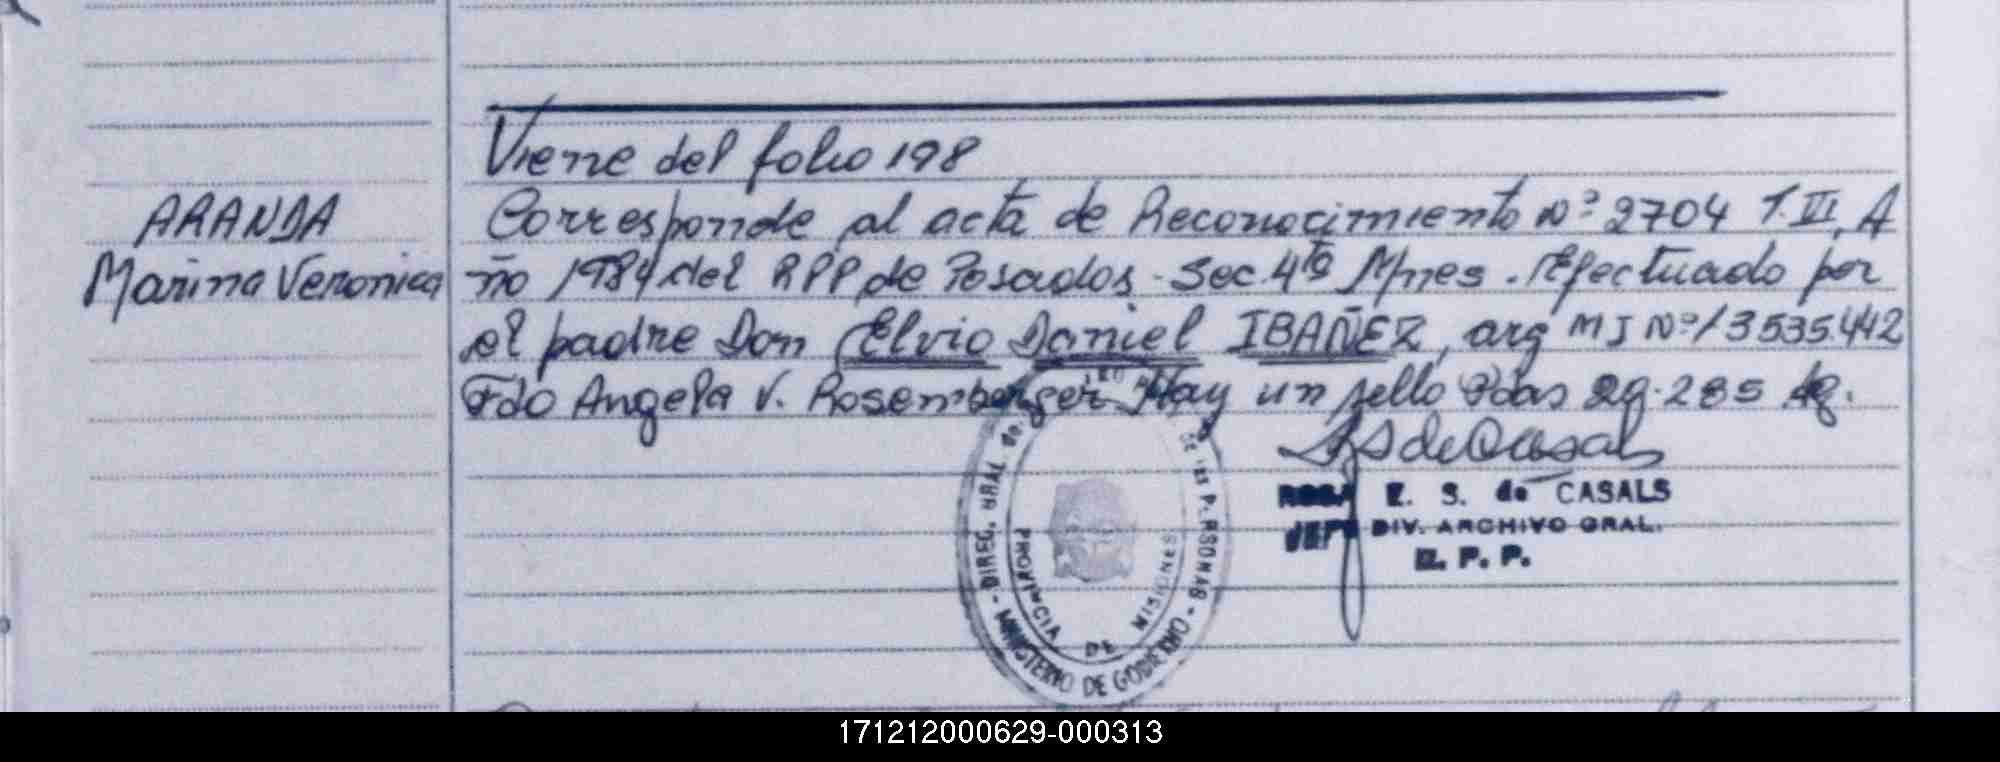 Viene del folio 198
ARANDA
Marina Veronica
Corresponde al acta de Reconocimiento Nº 2704 T. VI, A
ño 1984 del RPP de Posadas - Sec. 4ta Mnes. Efectuado por
el padre Don Elvio Daniel IBAÑEZ, arg MI Nº 13535.442
Fdo Angela V. Rosemberger Hay un sello Pdas 29.285
ROSA E. S. de CASALS
JEFE DIV. ARCHIVO GRAL.
R. P. P.
DIREC. GRAL de. DE LAS PERSONAS
PROVINCIA DE MISIONES
MINISTERIO DE GOBIERNO
171212000629-000313